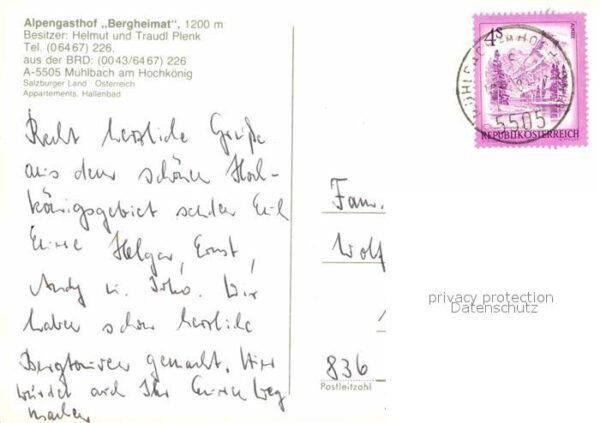 Alpengasthof „Bergheimat", 1200 m
Besitzer: Helmut und Traudl Plenk
Tel. (06467) 226,
aus der BRD: (0043/6467) 226
A-5505 Mühlbach am Hochkönig
Salzburger Land Österreich
Appartements, Hallenbad
4S
5505
REPUBLIK ÖSTERREICH
Recht herzliche Grüße
aus dem schönen Hoch-
königsgebiet senden Euch
Eure Helga, Ernst,
Andy u. Wir
haben schon herrliche
Bergtouren gemacht. Hier
würdet auch Ihr Euren Weg
machen
Fam.
Wolf
836
Postleitzahl
privacy protection
Datenschutz